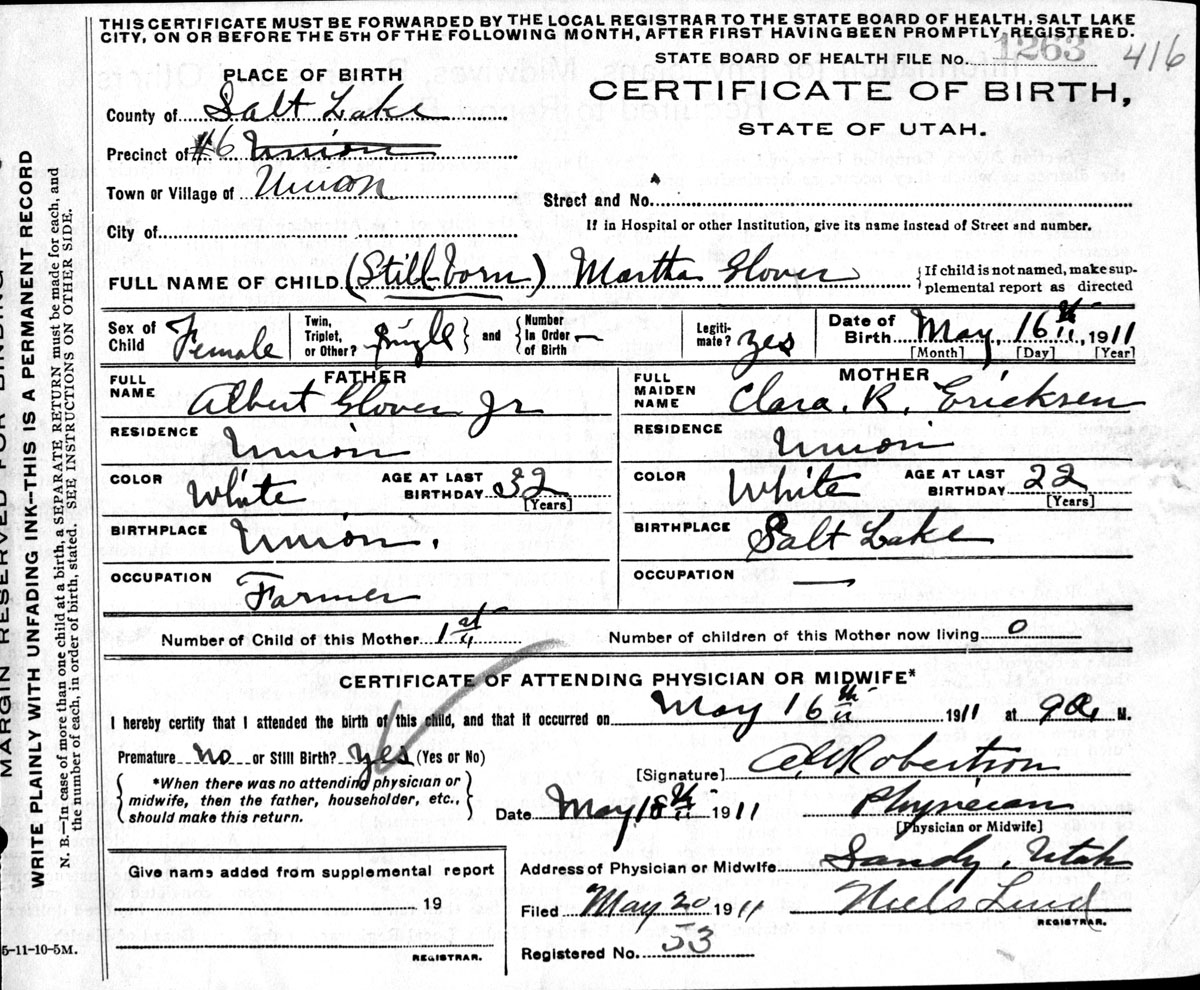 THIS CERTIFICATE MUST BE FORWARDED BY THE LOCAL REGISTRAR TO THE STATE BOARD OF HEALTH, SALT LAKE
CITY, ON OR BEFORE THE 5TH OF THE FOLLOWING MONTH, AFTER FIRST HAVING BEEN PROMPTLY REGISTERED.
STATE BOARD OF HEALTH FILE No. 1263 416
PLACE OF BIRTH
CERTIFICATE OF BIRTH,
STATE OF UTAH.
County of Salt Lake
Precinct of #6 Union
Town or Village of Union
Street and No.
City of
If in Hospital or other Institution, give its name instead of Street and number.
FULL NAME OF CHILD (Stillborn) Martha Glover {If child is not named, make sup-
plemental report as directed
Sex of Child Female Twin, Triplet, or Other? Single } and { Number In Order of Birth — Legiti-mate? yes Date of Birth May, 16th, 1911
[Month] [Day] [Year]
FATHER MOTHER
FULL NAME Albert Glover Jr FULL MAIDEN NAME Clara. R. Ericksen
RESIDENCE Union RESIDENCE Union
COLOR White AGE AT LAST BIRTHDAY 32 [Years] COLOR White AGE AT LAST BIRTHDAY 22 [Years]
BIRTHPLACE Union. BIRTHPLACE Salt Lake
OCCUPATION Farmer OCCUPATION —
Number of Child of this Mother 1st Number of children of this Mother now living 0
CERTIFICATE OF ATTENDING PHYSICIAN OR MIDWIFE*
I hereby certify that I attended the birth of this child, and that it occurred on May 16th 1911 at 9 a. M.
Premature no or Still Birth? yes (Yes or No)
[Signature] Robertson
*When there was no attending physician or
midwife, then the father, householder, etc.,
should make this return.
Date May 18th 1911 Physician
[Physician or Midwife]
Address of Physician or Midwife Sandy, Utah
Filed May 20 1911 Niels Lind
REGISTRAR.
Registered No. 53
Give name added from supplemental report
19
REGISTRAR.
5-11-10-5M.
MARGIN RESERVED FOR BINDING
WRITE PLAINLY WITH UNFADING INK—THIS IS A PERMANENT RECORD
N. B.—In case of more than one child at a birth, a SEPARATE RETURN must be made for each, and
the number of each, in order of birth, stated. SEE INSTRUCTIONS ON OTHER SIDE.